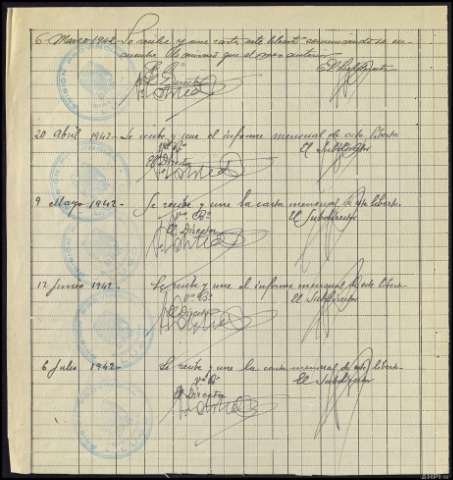 6 Marzo 1942 Se recibe y une carta este liberto comunicando se en-
cuentra lo mismo que el mes anterior
Vº Bº
El Director
El Subdirector
20 Abril 1942.- Se recibe y une el informe mensual de este liberto
Vº Bº
El Director
El Subdirector
9 Mayo 1942 - Se recibe y une la carta mensual de este liberto-
Vº Bº
El Director
El Subdirector
17 Junio 1942.- Se recibe y une el informe mensual de este liberto-
Vº Bº
El Director
El Subdirector
6 Julio 1942 - Se recibe y une la carta mensual de este liberto-
Vº Bº
El Director
El Subdirector